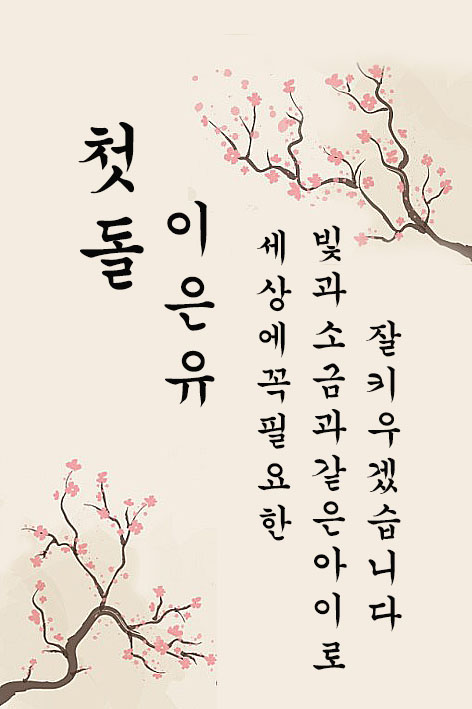 첫돌
이은유
세상에꼭필요한
빛과소금과같은아이로
잘키우겠습니다